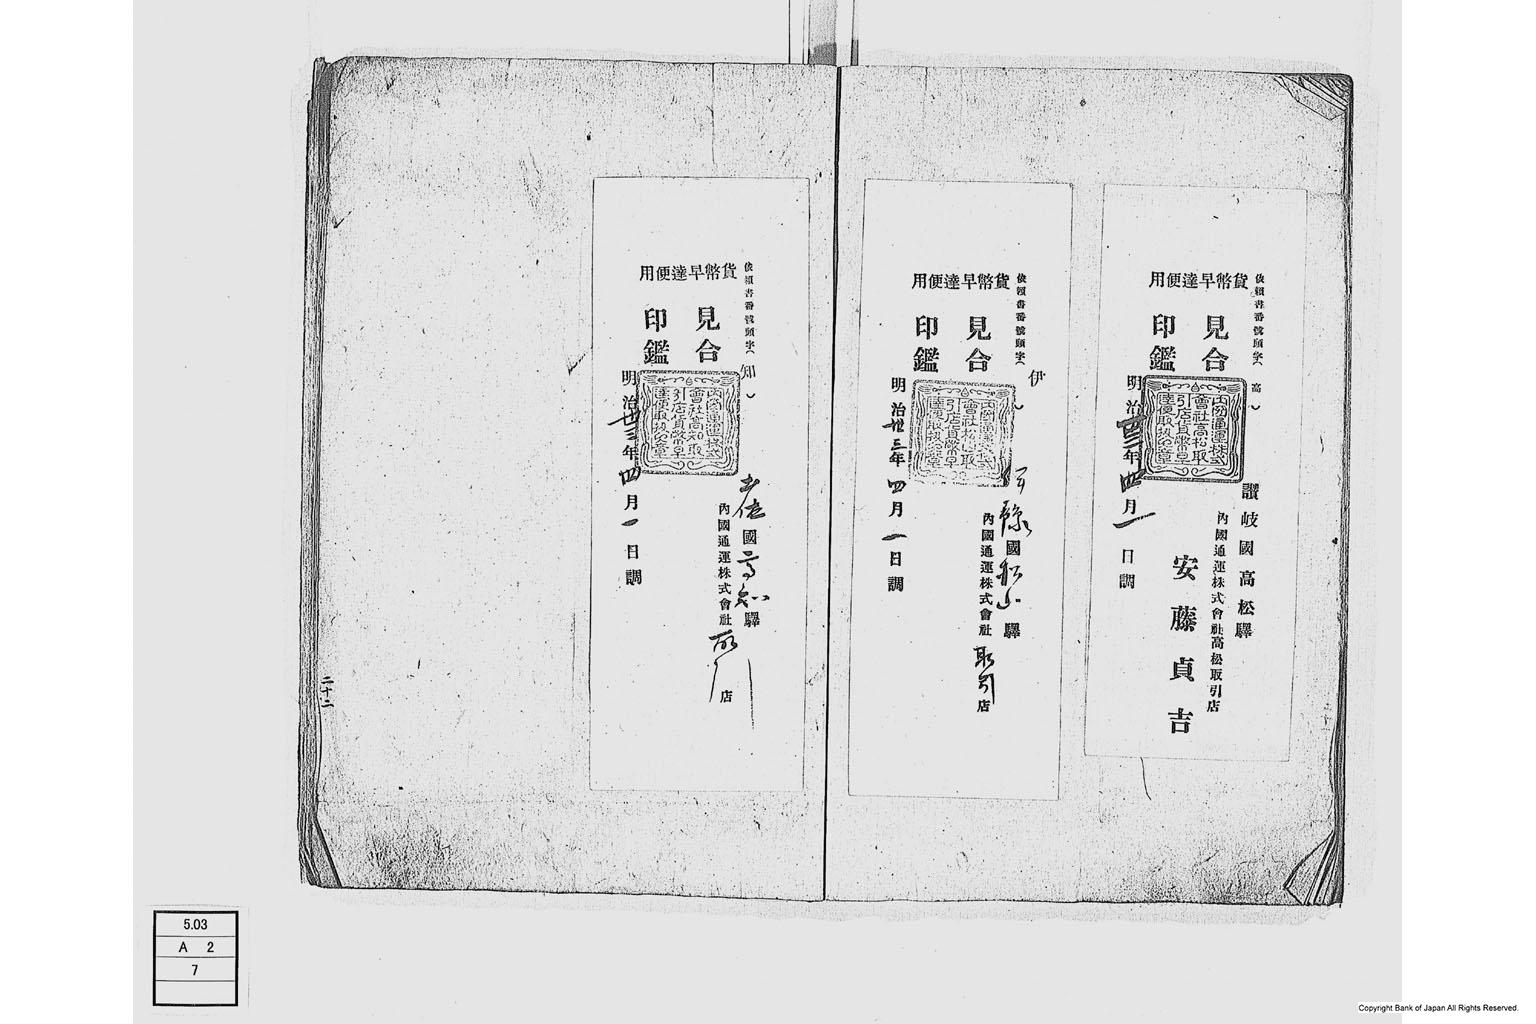 依賴書番號頭字(高)
貨幣早達便用
見合
印鑑
內國通運株式
會社高松取
引店貨幣早
達便取扱之章
讚岐國高松驛
內國通運株式會社高松取引店
安藤貞吉
明治卅三年四月一日調
依賴書番號頭字(伊)
貨幣早達便用
見合
印鑑
內國通運株式
會社松山取
引店貨幣早
達便取扱之章
伊豫國松山驛
內國通運株式會社取引店
明治卅三年四月一日調
依賴書番號頭字(知)
貨幣早達便用
見合
印鑑
內國通運株式
會社高知取
引店貨幣早
達便取扱之章
土佐國高知驛
內國通運株式會社取引店
明治卅三年四月一日調
二十二
5.03
A 2
7
Copyright Bank of Japan All Rights Reserved.